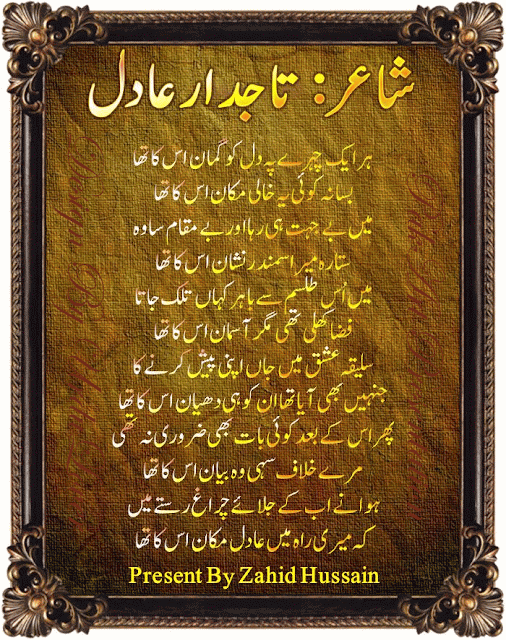 شاعر: تاجدار عادل
ہر ایک چہرے پہ دل کو گمان اس کا تھا
بسا نہ کوئی یہ خالی مکان اس کا تھا
میں بے جہت ہی رہا اور بے مقام سا وہ
ستارہ میرا سمندر نشان اس کا تھا
میں اُس طلسم سے باہر کہاں تلک جاتا
فضا کھلی تھی مگر آسمان اس کا تھا
سلیقہ عشق میں جاں اپنی پیش کرنے کا
جنہیں بھی آیا تھا ان کو ہی دھیان اس کا تھا
پھر اس کے بعد کوئی بات بھی ضروری نہ تھی
مرے خلاف سہی وہ بیان اس کا تھا
ہوا نے اب کے جلائے چراغ رستے میں
کہ میری راہ میں عادل مکان اس کا تھا
Present By Zahid Hussain